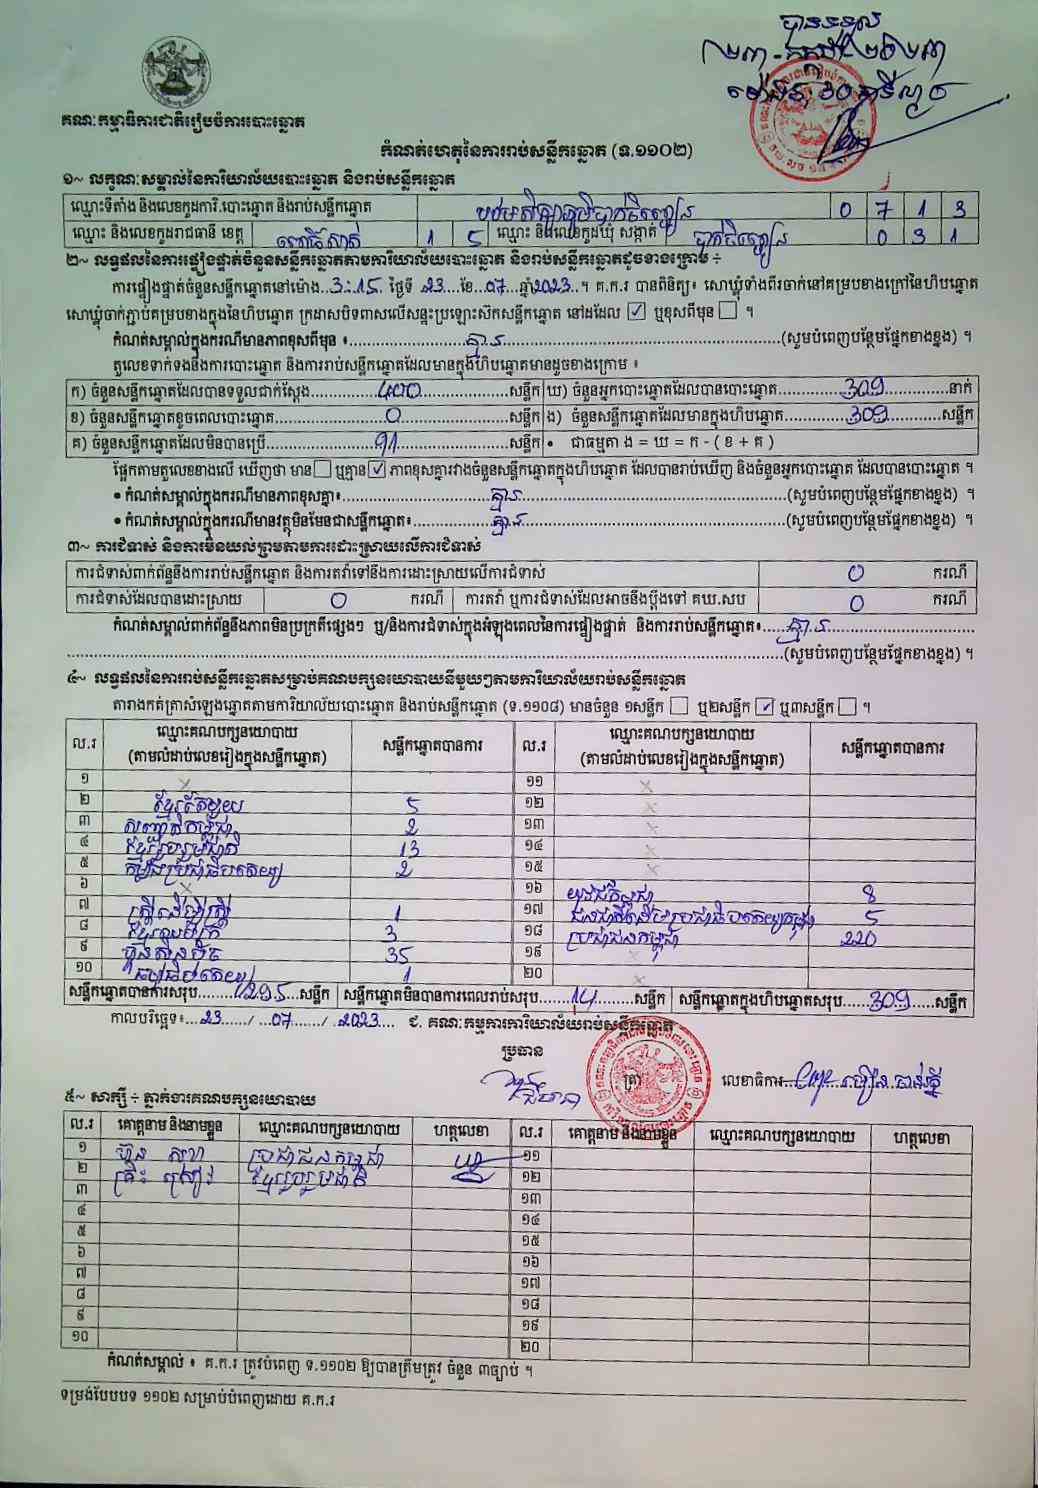 បានទទួល
គណៈកម្មាធិការជាតិរៀបចំការបោះឆ្នោត
កំណត់ហេតុនៃការរាប់សន្លឹកឆ្នោត (ទ.១១០២)
១~ លក្ខណៈសម្គាល់នៃការិយាល័យបោះឆ្នោត និងរាប់សន្លឹកឆ្នោត
ឈ្មោះទីតាំង និងលេខកូដការិ.បោះឆ្នោត និងរាប់សន្លឹកឆ្នោត 0 7 1 3
ឈ្មោះ និងលេខកូដរាជធានី ខេត្ត ពោធិ៍សាត់ 1 5 ឈ្មោះ និងលេខកូដឃុំ សង្កាត់ បាក់ចិញ្ចៀន 0 3 1
២~ លទ្ធផលនៃការផ្ទៀងផ្ទាត់ចំនួនសន្លឹកឆ្នោតតាមការិយាល័យបោះឆ្នោត និងរាប់សន្លឹកឆ្នោតដូចខាងក្រោម ÷
ការផ្ទៀងផ្ទាត់ចំនួនសន្លឹកឆ្នោតនៅម៉ោង...3:15. ថ្ងៃទី 23...ខែ...07...ឆ្នាំ2023..។ គ.ក.រ បានពិនិត្យ៖ សោឃ្លុំទាំងពីរចាក់នៅគម្របខាងក្រៅនៃហិបឆ្នោត
សោឃ្លុំចាក់ភ្ជាប់គម្របខាងក្នុងនៃហិបឆ្នោត ក្រដាសបិទពាសលើសន្ទះប្រឡោះស៊កសន្លឹកឆ្នោត នៅដដែល ☑ ឬខុសពីមុន ☐ ។
កំណត់សម្គាល់ក្នុងករណីមានភាពខុសពីមុន ៖ គ្មាន (សូមបំពេញបន្ថែមផ្នែកខាងខ្នង) ។
តួលេខទាក់ទងនឹងការបោះឆ្នោត និងការរាប់សន្លឹកឆ្នោតដែលមានក្នុងហិបឆ្នោតមានដូចខាងក្រោម ៖
ក) ចំនួនសន្លឹកឆ្នោតដែលបានទទួលជាក់ស្តែង 400 សន្លឹក ឃ) ចំនួនអ្នកបោះឆ្នោតដែលបានបោះឆ្នោត 309 នាក់
ខ) ចំនួនសន្លឹកឆ្នោតខូចពេលបោះឆ្នោត 0 សន្លឹក ង) ចំនួនសន្លឹកឆ្នោតដែលមានក្នុងហិបឆ្នោត 309 សន្លឹក
គ) ចំនួនសន្លឹកឆ្នោតដែលមិនបានប្រើ 91 សន្លឹក • ជាធម្មតា ង = ឃ = ក - ( ខ + គ )
ផ្អែកតាមតួលេខខាងលើ ឃើញថា មាន ☐ ឬគ្មាន ☑ ភាពខុសគ្នារវាងចំនួនសន្លឹកឆ្នោតក្នុងហិបឆ្នោត ដែលបានរាប់ឃើញ និងចំនួនអ្នកបោះឆ្នោត ដែលបានបោះឆ្នោត ។
• កំណត់សម្គាល់ក្នុងករណីមានភាពខុសគ្នា៖ គ្មាន (សូមបំពេញបន្ថែមផ្នែកខាងខ្នង) ។
• កំណត់សម្គាល់ក្នុងករណីមានវត្ថុមិនមែនជាសន្លឹកឆ្នោត៖ គ្មាន (សូមបំពេញបន្ថែមផ្នែកខាងខ្នង) ។
៣~ ការជំទាស់ និងការមិនយល់ព្រមតាមការដោះស្រាយលើការជំទាស់
ការជំទាស់ពាក់ព័ន្ធនឹងការរាប់សន្លឹកឆ្នោត និងការតវ៉ាទៅនឹងការដោះស្រាយលើការជំទាស់ 0 ករណី
ការជំទាស់ដែលបានដោះស្រាយ 0 ករណី ការតវ៉ា ឬការជំទាស់ដែលអាចនឹងប្តឹងទៅ គឃ.សប 0 ករណី
កំណត់សម្គាល់ពាក់ព័ន្ធនឹងភាពមិនប្រក្រតីផ្សេងៗ ឬ/និងការជំទាស់ក្នុងអំឡុងពេលនៃការផ្ទៀងផ្ទាត់ និងការរាប់សន្លឹកឆ្នោត៖ គ្មាន
(សូមបំពេញបន្ថែមផ្នែកខាងខ្នង) ។
៤~ លទ្ធផលនៃការរាប់សន្លឹកឆ្នោតសម្រាប់គណបក្សនយោបាយនីមួយៗតាមការិយាល័យរាប់សន្លឹកឆ្នោត
តារាងកត់ត្រាសំឡេងឆ្នោតតាមការិយាល័យបោះឆ្នោត និងរាប់សន្លឹកឆ្នោត (ទ.១១០៨) មានចំនួន ១សន្លឹក ☐ ឬ២សន្លឹក ☑ ឬ៣សន្លឹក ☐ ។
ល.រ ឈ្មោះគណបក្សនយោបាយ (តាមលំដាប់លេខរៀងក្នុងសន្លឹកឆ្នោត) សន្លឹកឆ្នោតបានការ ល.រ ឈ្មោះគណបក្សនយោបាយ (តាមលំដាប់លេខរៀងក្នុងសន្លឹកឆ្នោត) សន្លឹកឆ្នោតបានការ
១ x ១១ x
២ ខ្មែរតែមួយ 5 ១២ x
៣ សញ្ជាតិកម្ពុជា 2 ១៣ x
៤ ខ្មែររួបរួមជាតិ 13 ១៤ x
៥ កម្លាំងប្រជាធិបតេយ្យ 2 ១៥ x
៦ x ១៦ យុវជនកម្ពុជា 8
៧ ស្ត្រីដើម្បីស្ត្រី 1 ១៧ ជនជាតិដើមប្រជាធិបតេយ្យកម្ពុជា 5
៨ ខ្មែរអភិរក្ស 3 ១៨ ប្រជាជនកម្ពុជា 220
៩ ហ៊្វុនស៊ិនប៉ិច 35 ១៩ x
១០ ធម្មាធិបតេយ្យ 1 ២០ x
សន្លឹកឆ្នោតបានការសរុប 295 សន្លឹក សន្លឹកឆ្នោតមិនបានការពេលរាប់សរុប 14 សន្លឹក សន្លឹកឆ្នោតក្នុងហិបឆ្នោតសរុប 309 សន្លឹក
កាលបរិច្ឆេទ៖ 23 / 07 / 2023 ជ. គណៈកម្មការការិយាល័យរាប់សន្លឹកឆ្នោត
ប្រធាន
លេខាធិការ
៥~ សាក្សី ÷ ភ្នាក់ងារគណបក្សនយោបាយ
ល.រ គោត្តនាម និងនាមខ្លួន ឈ្មោះគណបក្សនយោបាយ ហត្ថលេខា ល.រ គោត្តនាម និងនាមខ្លួន ឈ្មោះគណបក្សនយោបាយ ហត្ថលេខា
១ ប្រជាជនកម្ពុជា ១១
២ ខ្មែររួបរួមជាតិ ១២
៣ ១៣
៤ ១៤
៥ ១៥
៦ ១៦
៧ ១៧
៨ ១៨
៩ ១៩
១០ ២០
កំណត់សម្គាល់ ៖ គ.ក.រ ត្រូវបំពេញ ទ.១១០២ ឱ្យបានត្រឹមត្រូវ ចំនួន ៣ច្បាប់ ។
ទម្រង់បែបបទ ១១០២ សម្រាប់បំពេញដោយ គ.ក.រ